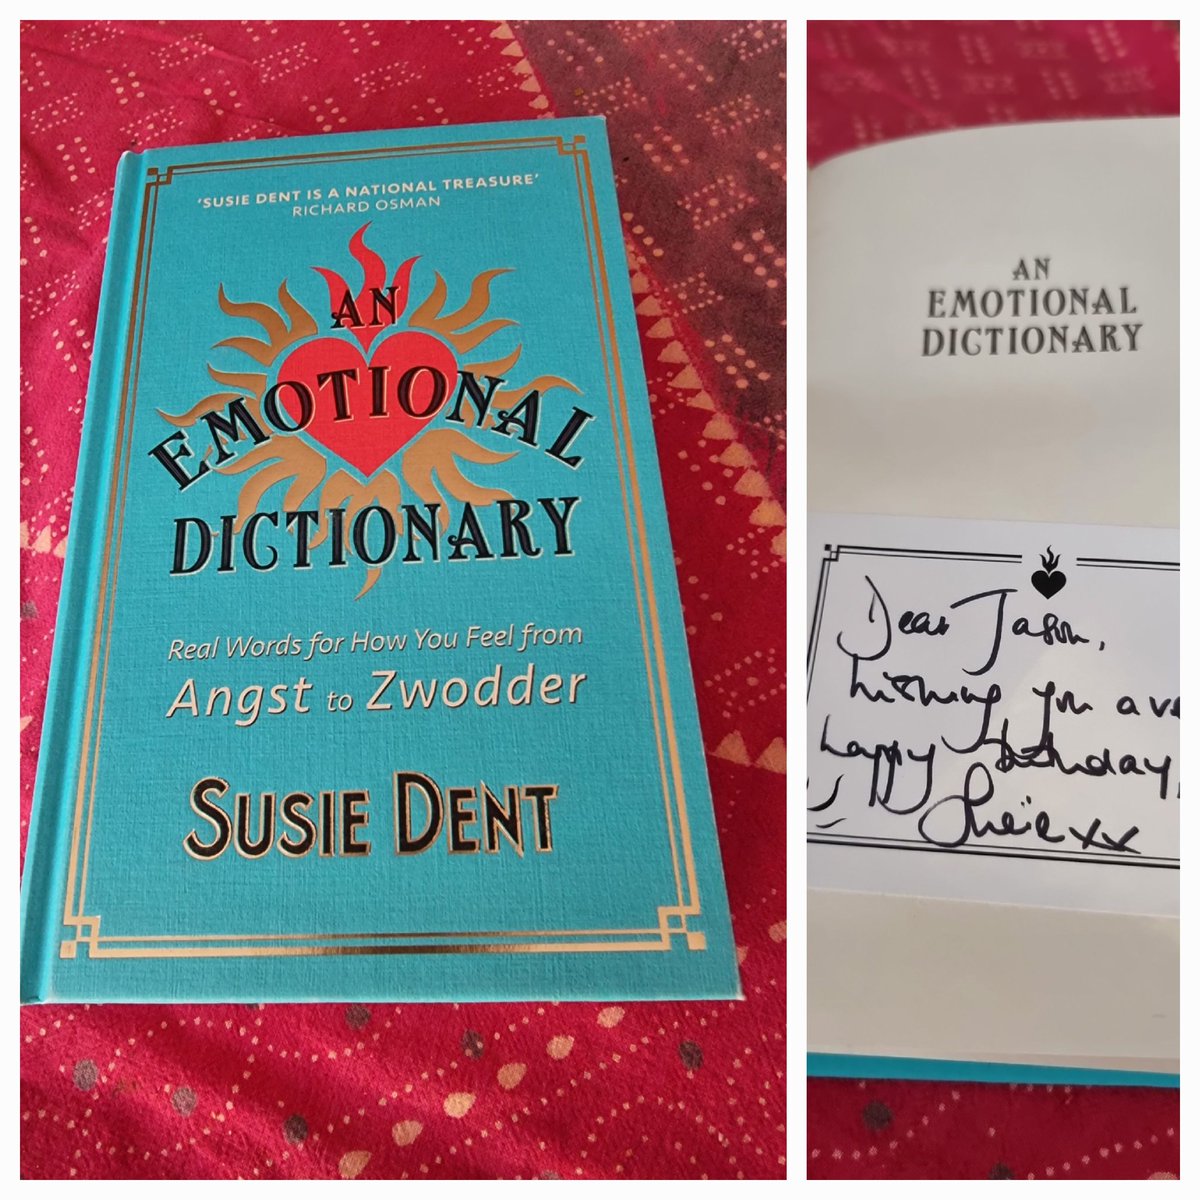 'SUSIE DENT IS A NATIONAL TREASURE'
RICHARD OSMAN
AN
EMOTIONAL
DICTIONARY
Real Words for How You Feel from
Angst to Zwodder
SUSIE DENT
AN
EMOTIONAL
DICTIONARY
Dear Jason,
wishing you a ve
happy birthday,
Susie xx